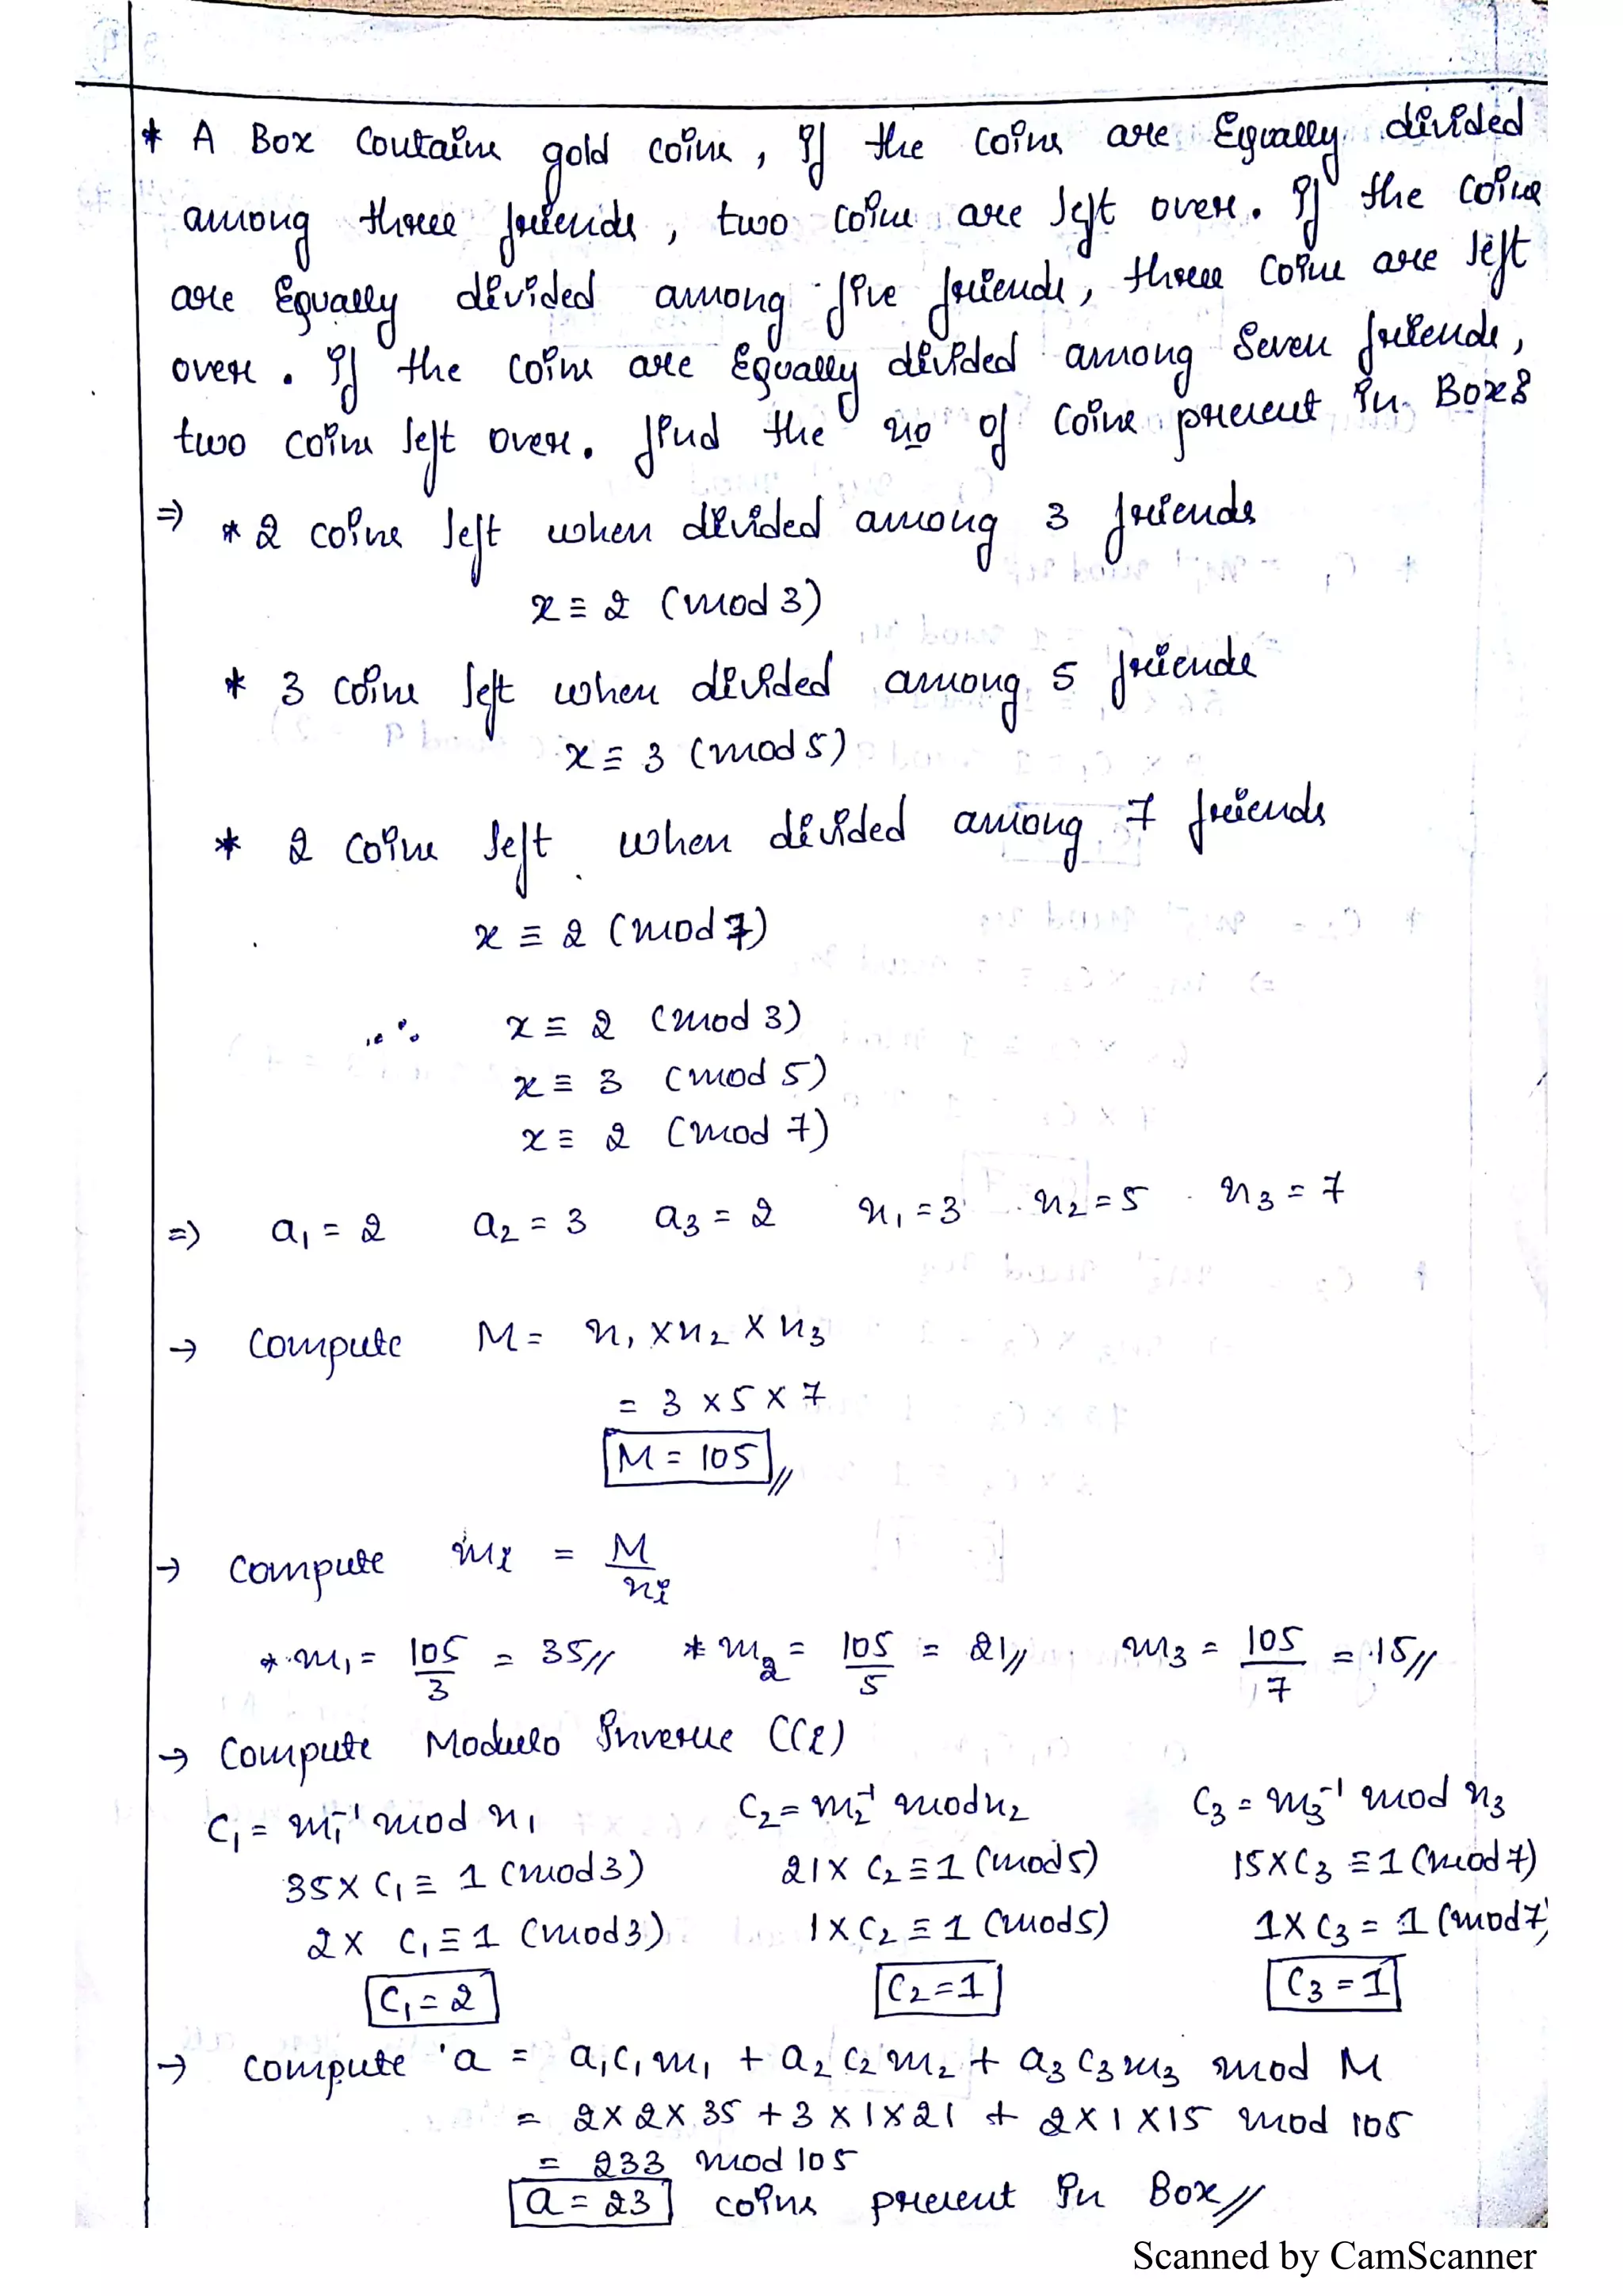 * A Box Contains gold coins, If the coins are Equally divided
among three friends, two coins are left over. If the coins
are Equally divided among five friends, three coins are left
over. If the coins are Equally divided among Seven friends,
two coins left over. find the no of coins present in Box?
⇒ * 2 coins left when divided among 3 friends
x ≡ 2 (mod 3)
* 3 coins left when divided among 5 friends
x ≡ 3 (mod 5)
* 2 coins left when divided among 7 friends
x ≡ 2 (mod 7)
∴ x ≡ 2 (mod 3)
x ≡ 3 (mod 5)
x ≡ 2 (mod 7)
⇒ a₁ = 2 a₂ = 3 a₃ = 2 n₁ = 3 n₂ = 5 n₃ = 7
→ Compute M = n₁ × n₂ × n₃
= 3 × 5 × 7
M = 105 //
→ Compute mi = M/ni
* m₁ = 105/3 = 35 // * m₂ = 105/5 = 21 // m₃ = 105/7 = 15 //
→ Compute Modulo Inverse (Ci)
C₁ = m₁⁻¹ mod n₁ C₂ = m₂⁻¹ mod n₂ C₃ = m₃⁻¹ mod n₃
35 × C₁ ≡ 1 (mod 3) 21 × C₂ ≡ 1 (mod 5) 15 × C₃ ≡ 1 (mod 7)
2 × C₁ ≡ 1 (mod 3) 1 × C₂ ≡ 1 (mod 5) 1 × C₃ = 1 (mod 7)
C₁ = 2 C₂ = 1 C₃ = 1
→ compute a = a₁C₁m₁ + a₂C₂m₂ + a₃C₃m₃ mod M
= 2 × 2 × 35 + 3 × 1 × 21 + 2 × 1 × 15 mod 105
= 233 mod 105
a = 23 coins present in Box //
Scanned by CamScanner